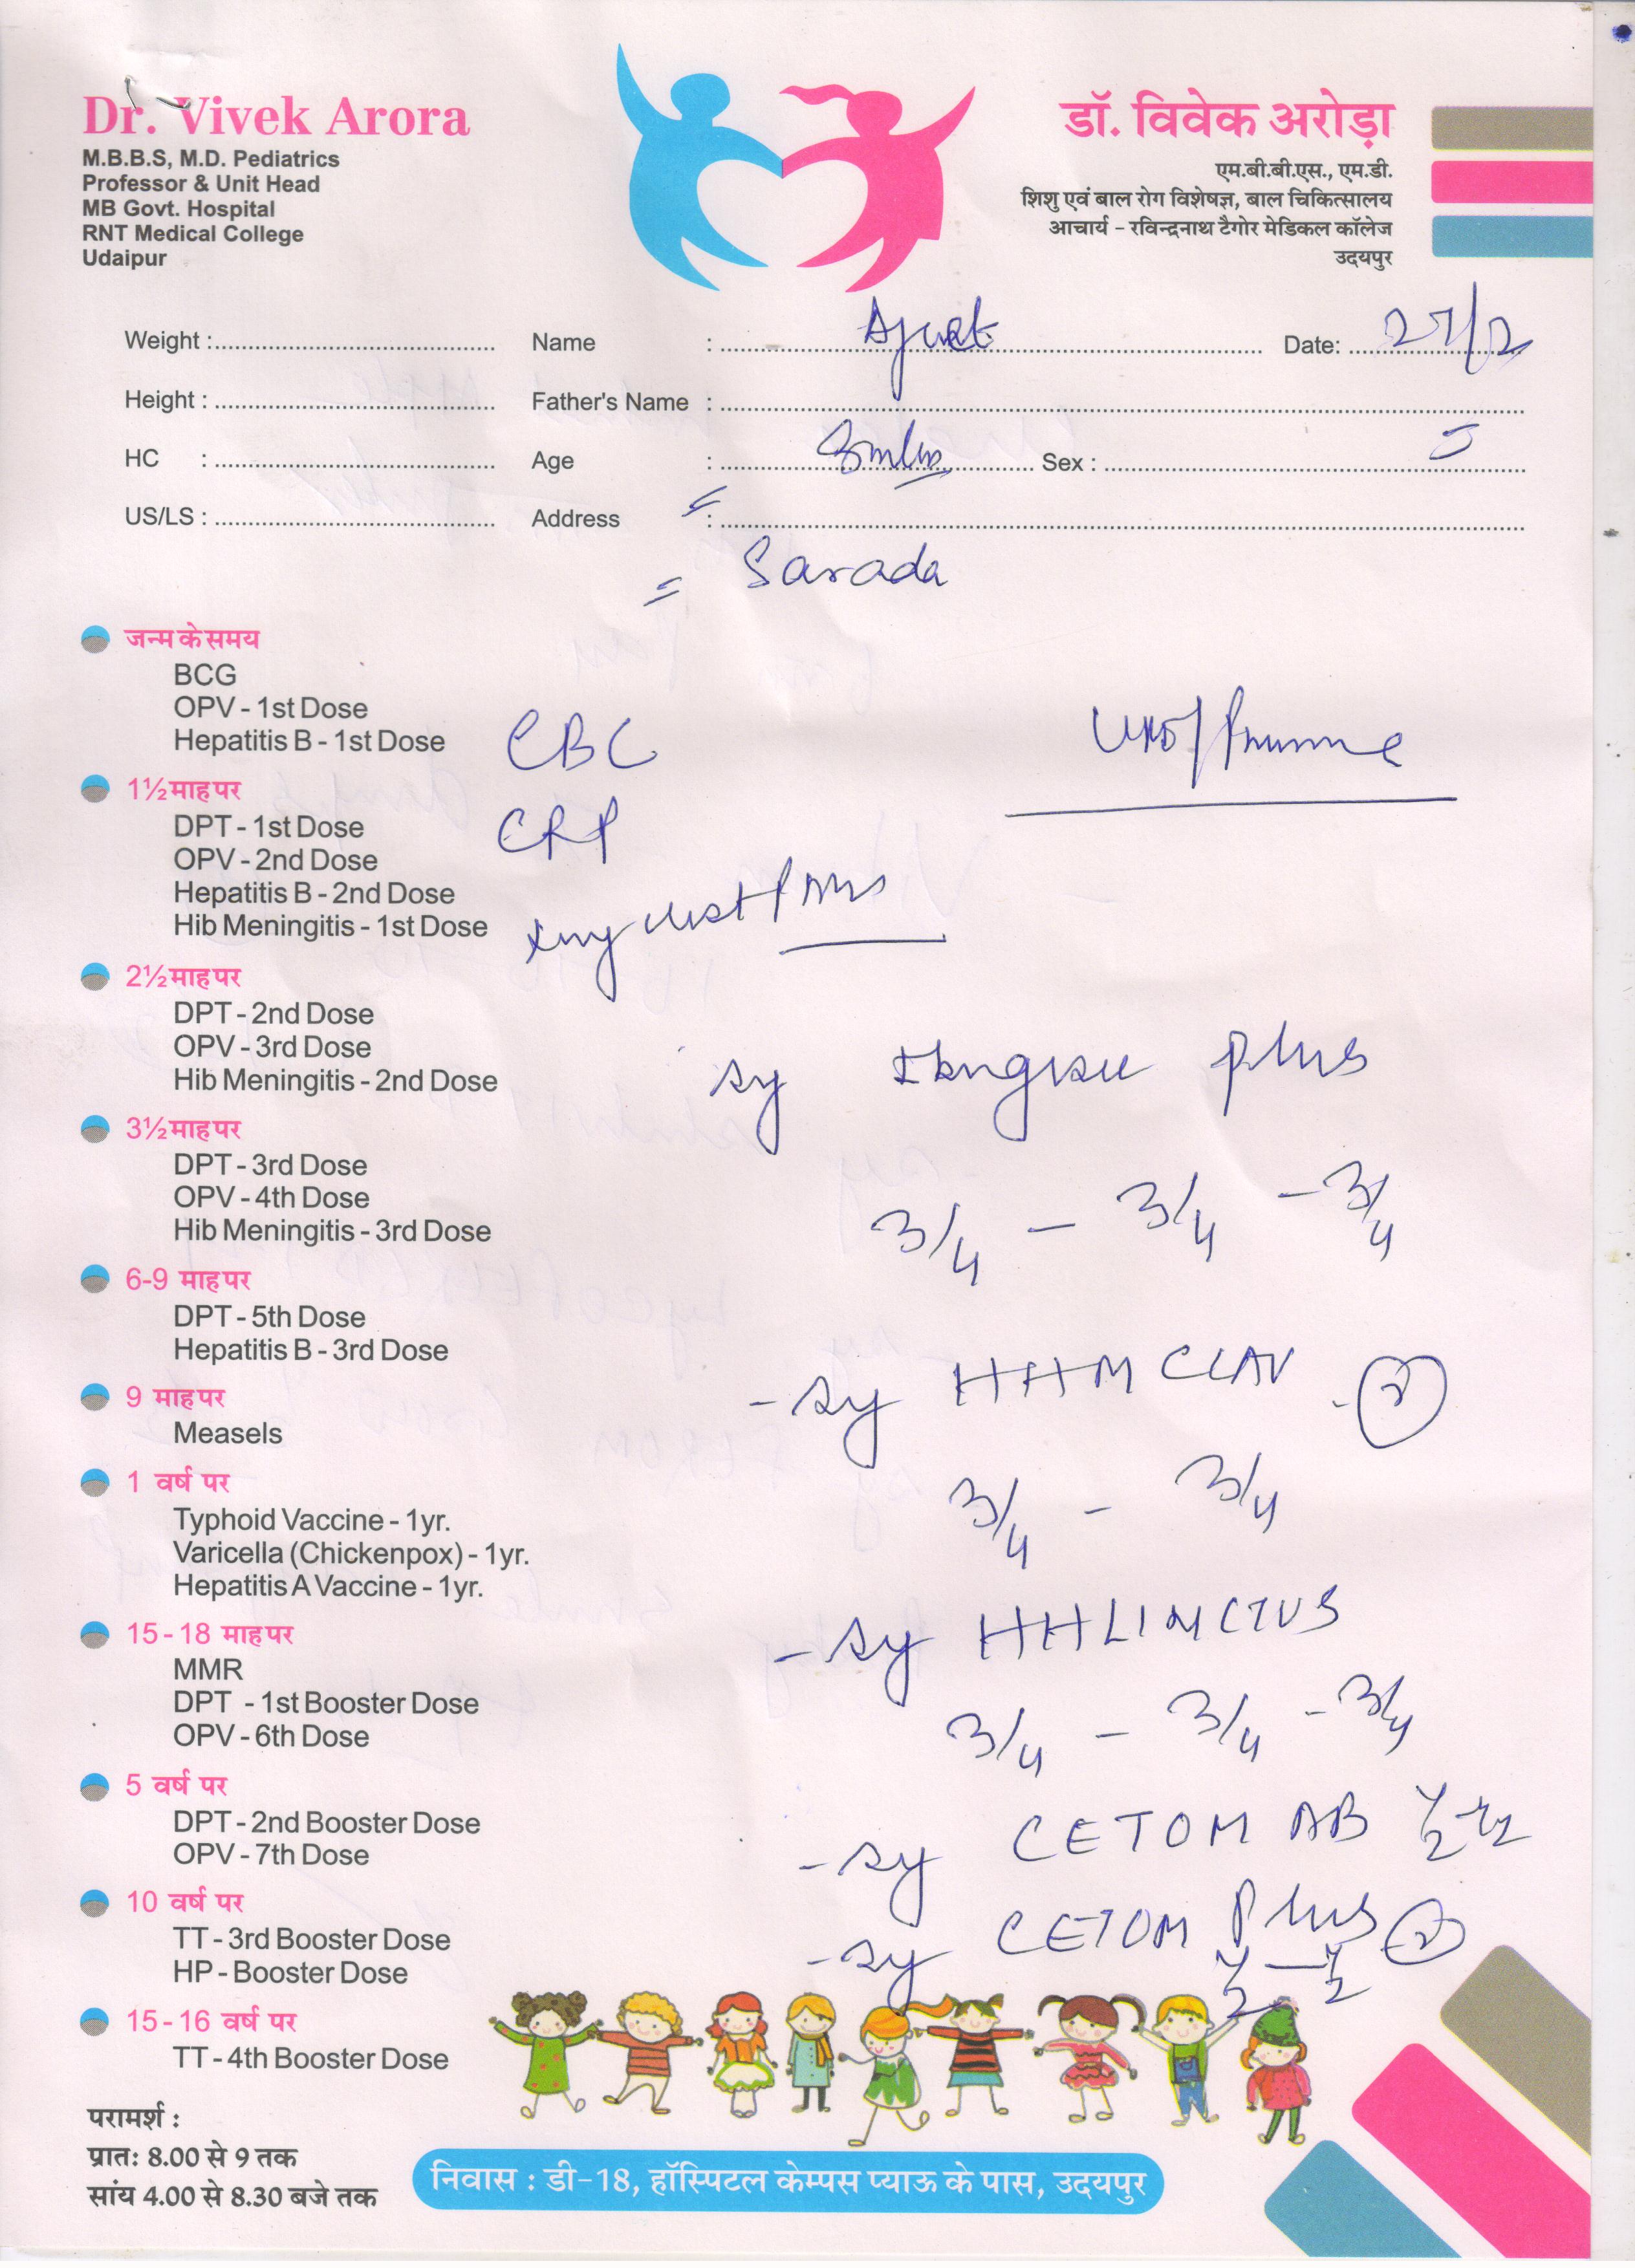 Dr. Vivek Arora
M.B.B.S, M.D. Pediatrics
Professor & Unit Head
MB Govt. Hospital
RNT Medical College
Udaipur
डॉ. विवेक अरोड़ा
एम.बी.बी.एस., एम.डी.
शिशु एवं बाल रोग विशेषज्ञ, बाल चिकित्सालय
आचार्य - रविन्द्रनाथ टैगोर मेडिकल कॉलेज
उदयपुर
Weight : Name : Date: 27/2
Height : Father's Name :
HC : Age : Sex :
US/LS : Address :
Sarada
जन्म के समय
BCG
OPV - 1st Dose
Hepatitis B - 1st Dose
CBC
1½ माह पर
DPT - 1st Dose
CRP
OPV - 2nd Dose
Hepatitis B - 2nd Dose
Hib Meningitis - 1st Dose
2½ माह पर
DPT - 2nd Dose
OPV - 3rd Dose
Hib Meningitis - 2nd Dose
sy plus
3½ माह पर
DPT - 3rd Dose
OPV - 4th Dose
Hib Meningitis - 3rd Dose
3/4 - 3/4 - 3/4
6-9 माह पर
DPT - 5th Dose
Hepatitis B - 3rd Dose
- sy HHM CLAV -
9 माह पर
Measels
1 वर्ष पर
3/4 - 3/4
Typhoid Vaccine - 1yr.
Varicella (Chickenpox) - 1yr.
Hepatitis A Vaccine - 1yr.
- sy HHLINCTUS
15 - 18 माह पर
MMR
DPT - 1st Booster Dose
OPV - 6th Dose
3/4 - 3/4 - 3/4
5 वर्ष पर
DPT - 2nd Booster Dose
OPV - 7th Dose
- sy CETOM AB ½ - ½
10 वर्ष पर
TT - 3rd Booster Dose
HP - Booster Dose
- sy CETOM Plus
½ - ½
15 - 16 वर्ष पर
TT - 4th Booster Dose
परामर्श :
प्रातः 8.00 से 9 तक
सांय 4.00 से 8.30 बजे तक
निवास : डी-18, हॉस्पिटल केम्पस प्याऊ के पास, उदयपुर